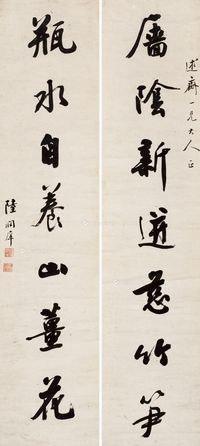 述齋一兄大人正
廧陰新迸慈竹笋
瓶水自養山薑花
陸潤庠